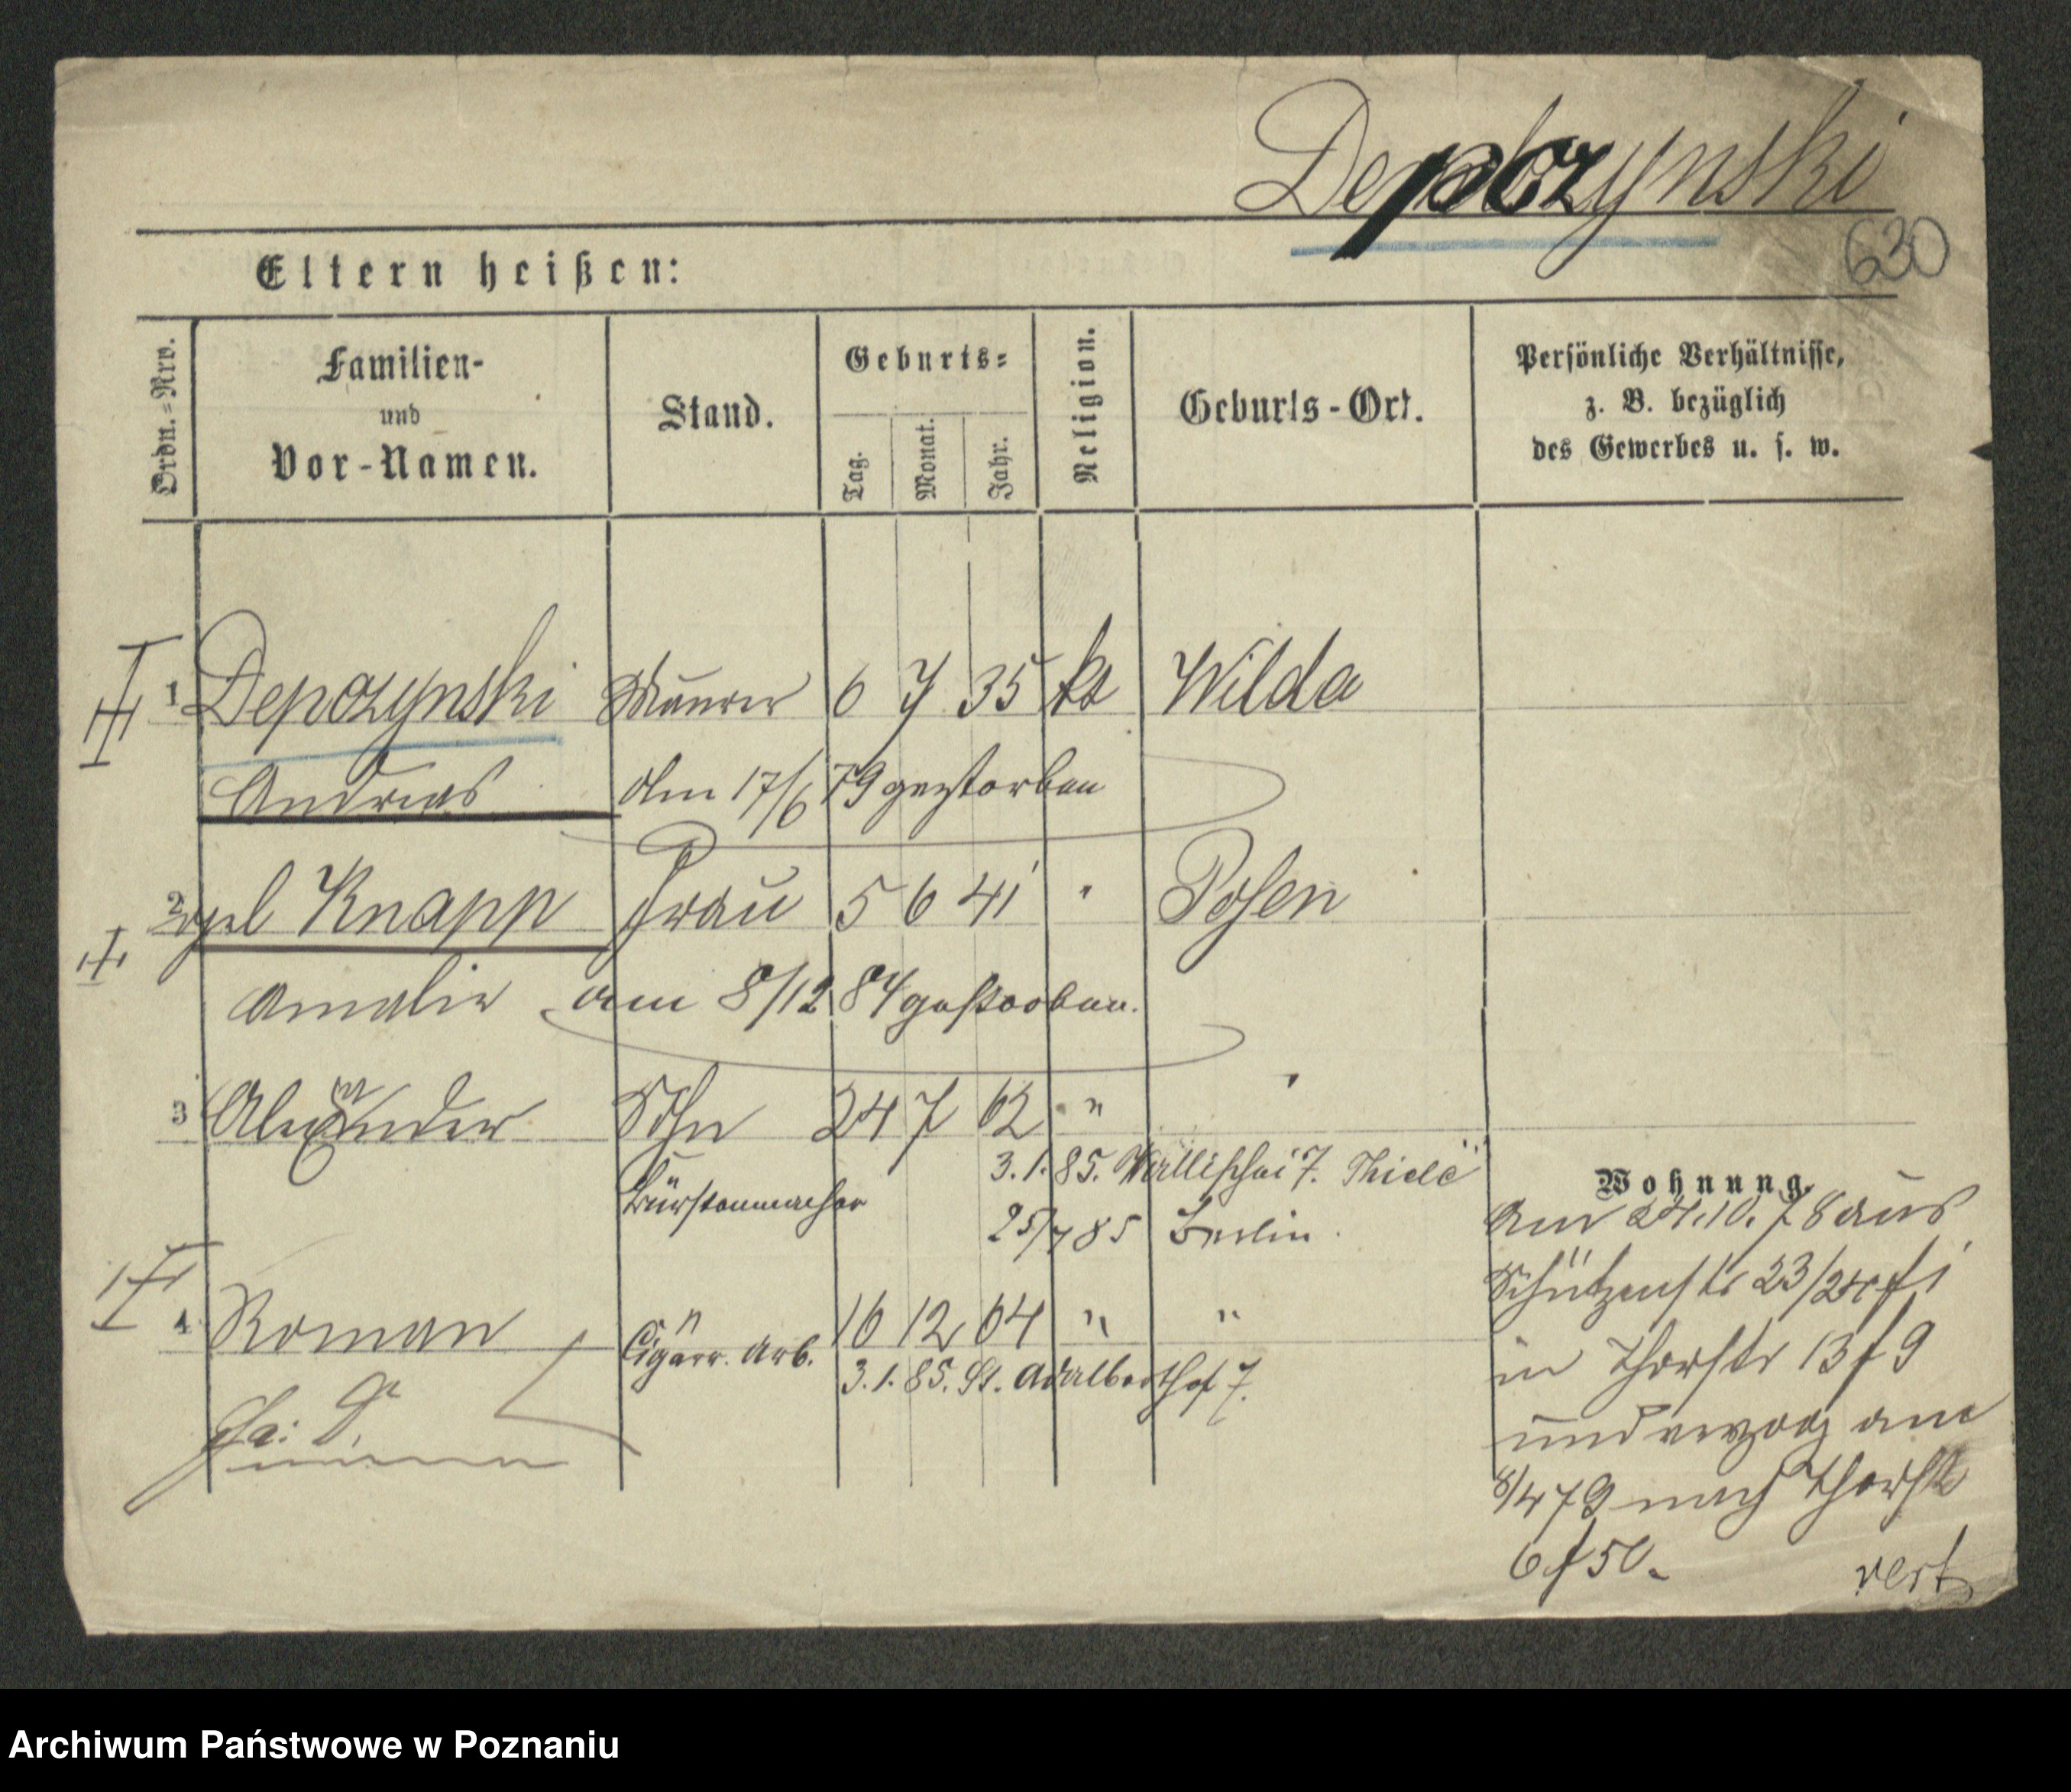 Depczynski
630
Eltern heißen:
Ordn.=Nro.
Familien-
und
Vor-Namen.
Stand.
Geburts=
Tag.
Monat.
Jahr.
Religion.
Geburts-Ort.
Persönliche Verhältnisse,
z. B. bezüglich
des Gewerbes u. s. w.
1 Depczynski Maurer 6 7 35 kt Wilda
Andreas Am 17/6 79 gestorben
2 Knapp Frau 5 6 41 " Posen
Amalie am 8/12 84 gestorben.
3 Alexander Sohn 24 7 62 " "
3.1.85. Wallischei 7. Thiele
Bürstenmacher
25/7 85 Berlin.
4 Roman " 16 12 64 " "
Cigarr. Arb.
3.1.85. St. Adalberthof 7.
Wohnung.
Am 24.10.78 aus
Schützenstr 23/24 f 1
in Thorstr 13 f 9
und verzog am
8/4 79 nach Thorstr
6 f 50.
vert
Archiwum Państwowe w Poznaniu